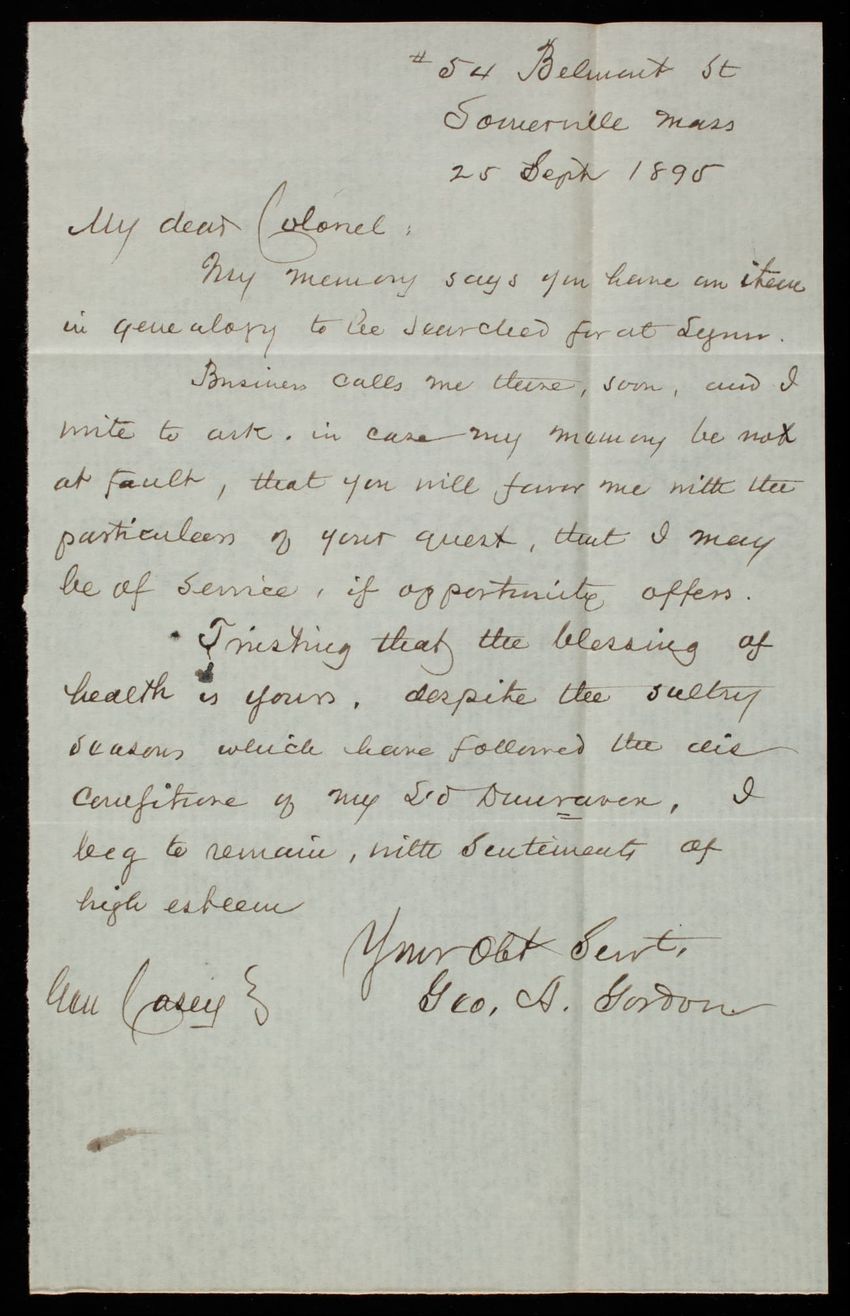 # 54 Belmont St
Somerville Mass
25 Sept 1895
My dear Colonel:
My memory says you have an item
in genealogy to be searched for at Lynn.
Business calls me there, soon, and I
write to ask. in case my memory be not
at fault, that you will favor me with the
particulars of your quest, that I may
be of service, if opportunity offers.
Trusting that the blessing of
health is yours, despite the sultry
seasons which have followed the dis
comfiture of my Ld Dunraven, I
beg to remain, with sentiments of
high esteem
Your Obt Servt.
Geo. A. Gordon
Gen Casey